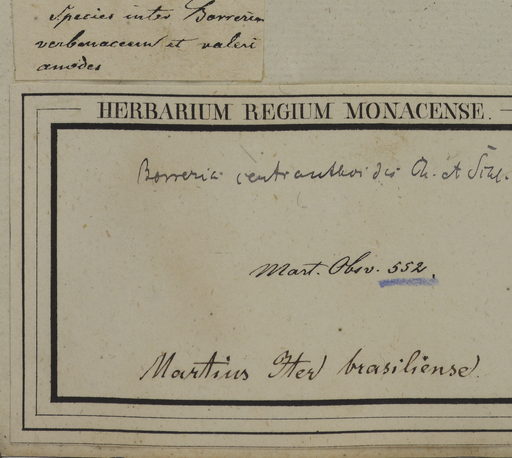 Species inter Borreriam
verbenaceam et valeri
anoides
HERBARIUM REGIUM MONACENSE.
Borreria centranthoides Ch. et Schl.
Mart. Obsv. 552.
Martius Iter brasiliense